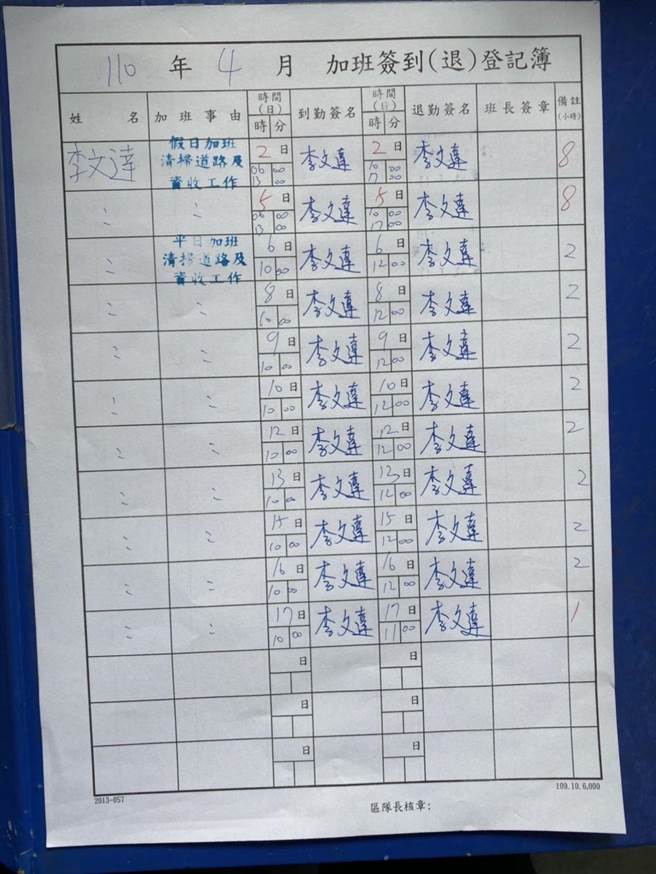 110 年 4 月 加班簽到(退)登記簿
姓名 加班事由 時間(日) 時 分 到勤簽名 時間(日) 時 分 退勤簽名 班長簽章 備註(小時)
李文達 假日加班清掃道路及資收工作 2日 06 00 13 00 李文達 2日 10 00 17 00 李文達 8
〃 〃 5日 06 00 13 00 李文達 5日 10 00 17 00 李文達 8
〃 平日加班清掃道路及資收工作 6日 10 00 李文達 6日 12 00 李文達 2
〃 〃 8日 10 00 李文達 8日 12 00 李文達 2
〃 〃 9日 10 00 李文達 9日 12 00 李文達 2
〃 〃 10日 10 00 李文達 10日 12 00 李文達 2
〃 〃 12日 10 00 李文達 12日 12 00 李文達 2
〃 〃 13日 10 00 李文達 13日 12 00 李文達 2
〃 〃 15日 10 00 李文達 15日 12 00 李文達 2
〃 〃 16日 10 00 李文達 16日 12 00 李文達 2
〃 〃 17日 10 00 李文達 17日 11 00 李文達 1
日 日
日 日
日 日
2013-057 109.10.6,000
區隊長核章: